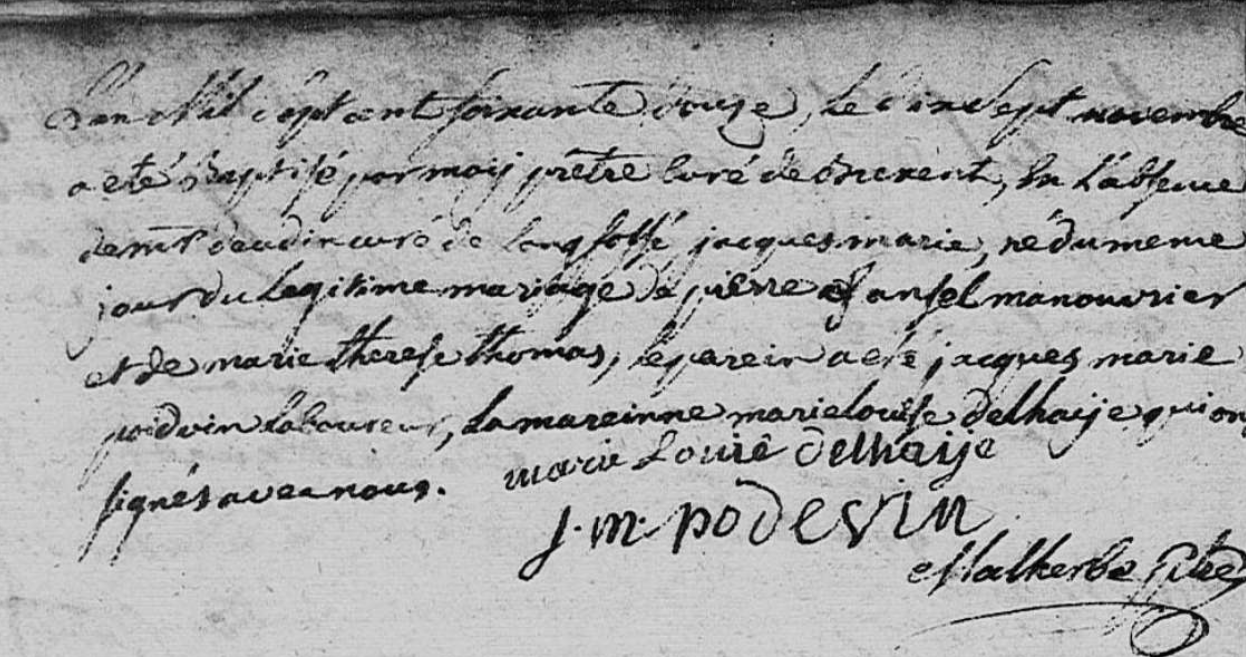 L'an Mil sept cent soixante douze, le dixsept novembre
a eté Baptisé par moÿ prêtre Curé de Brexent, En L'absence
de mr daudin curé de longfossé, jacques marie, né du meme
jour du Legitime mariage de pierre ansel manouvrier
et de marie therese thomas, le parein a eté jacques marie
poidvin laboureur, La mareinne marie louise delhaÿe qui ont
signés avec nous. marie Louise delhaÿe
j. m. podevin
Malherbe ptre